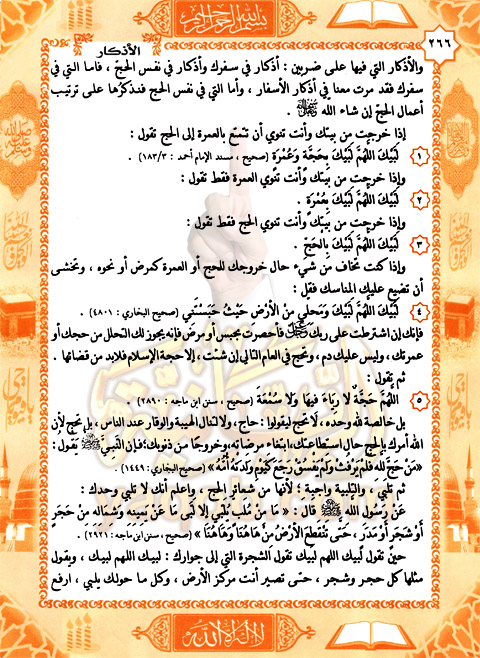 بسم الله الرحمن الرحيم
٢٦٦
الأذكار
والأذكار التي فيها على ضربين : أذكار في سفرك وأذكار في نفس الحج ، فاما التي في
سفرك فقد مرت معنا في أذكار الأسفار ، وأما التي في نفس الحج فنذكرها على ترتيب
أعمال الحج إن شاء الله ﷺ .
إذا خرجت من بيتك وأنت تنوي أن تتمتع بالعمرة إلى الحج تقول :
١ لَبَّيْكَ اللَّهُمَّ لَبَّيْكَ بِحَجَّةٍ وَعُمْرَةٍ . (صحيح ، مسند الإمام أحمد : ١٨٣/٣)
وإذا خرجت من بيتك وأنت تنوي العمرة فقط تقول :
٢ لَبَّيْكَ اللَّهُمَّ لَبَّيْكَ بِعُمْرَةٍ .
وإذا خرجت من بيتك وأنت تنوي الحج فقط تقول :
٣ لَبَّيْكَ اللَّهُمَّ لَبَّيْكَ بِالحَجِّ .
وإذا كنت تخاف من شيء حال خروجك للحج أو العمرة كمرض أو نحوه ، وتخشى
أن تضيع عليك المناسك فقل :
٤ لَبَّيْكَ اللَّهُمَّ لَبَّيْكَ وَمَحِلِّي مِنْ الأَرْضِ حَيْثُ حَبَسْتَنِي (صحيح البخاري : ٤٨٠١) .
فإنك إن اشترطت على ربك فأحصرت بحبس أو مرض فإنه يجوز لك التحلل من حجك أو
عمرتك ، وليس عليك دم ، وتحج في العام التالي إن شئت ، إلا حجة الإسلام فلابد من قضائها .
ثم تقول :
٥ اللَّهُمَّ حَجَّةٌ لا رِيَاءَ فِيهَا وَلا سُمْعَةَ (صحيح ، سنن ابن ماجه : ٢٨٩٠) .
بل خالصة لله وحده ، لا تحج ليقولوا : حاج ، ولا لتنال الهيبة والوقار عند الناس ، بل تحج لأن
الله أمرك بالحج حال استطاعتك ، ابتغاء مرضاته ، وخروجًا من ذنوبك ؛ فإن النبي ﷺ يقول :
«مَنْ حَجَّ لله فَلَمْ يَرْفُثْ وَلَمْ يَفْسُقْ رَجَعَ كَيَوْمِ وَلَدَتْهُ أُمُّهُ» (صحيح البخاري : ١٤٤٩) .
ثم تلبي ، والتلبية واجبة ؛ لأنها من شعائر الحج ، واعلم أنك لا تلبي وحدك :
عَنْ رسول الله ﷺ قال : « مَا مِنْ مُلَبٍّ يُلَبِّي إِلا لَبَّى مَا عَنْ يَمِينِهِ وَشِمَالِهِ مِنْ حَجَرٍ
أَوْ شَجَرٍ أَوْ مَدَرٍ ، حَتَّى تَنْقَطِعَ الأَرْضُ مِنْ هَاهُنَا وَهَاهُنَا » (صحيح ، سنن ابن ماجه : ٢٩٢١) .
حين تقول لبيك اللهم لبيك تقول الشجرة التي إلى جوارك : لبيك اللهم لبيك ، ويقول
مثلها كل حجر وشجر ، حتى تصير أنت مركز الأرض ، وكل ما حولك يلبي ، ارفع
لا إله إلا الله